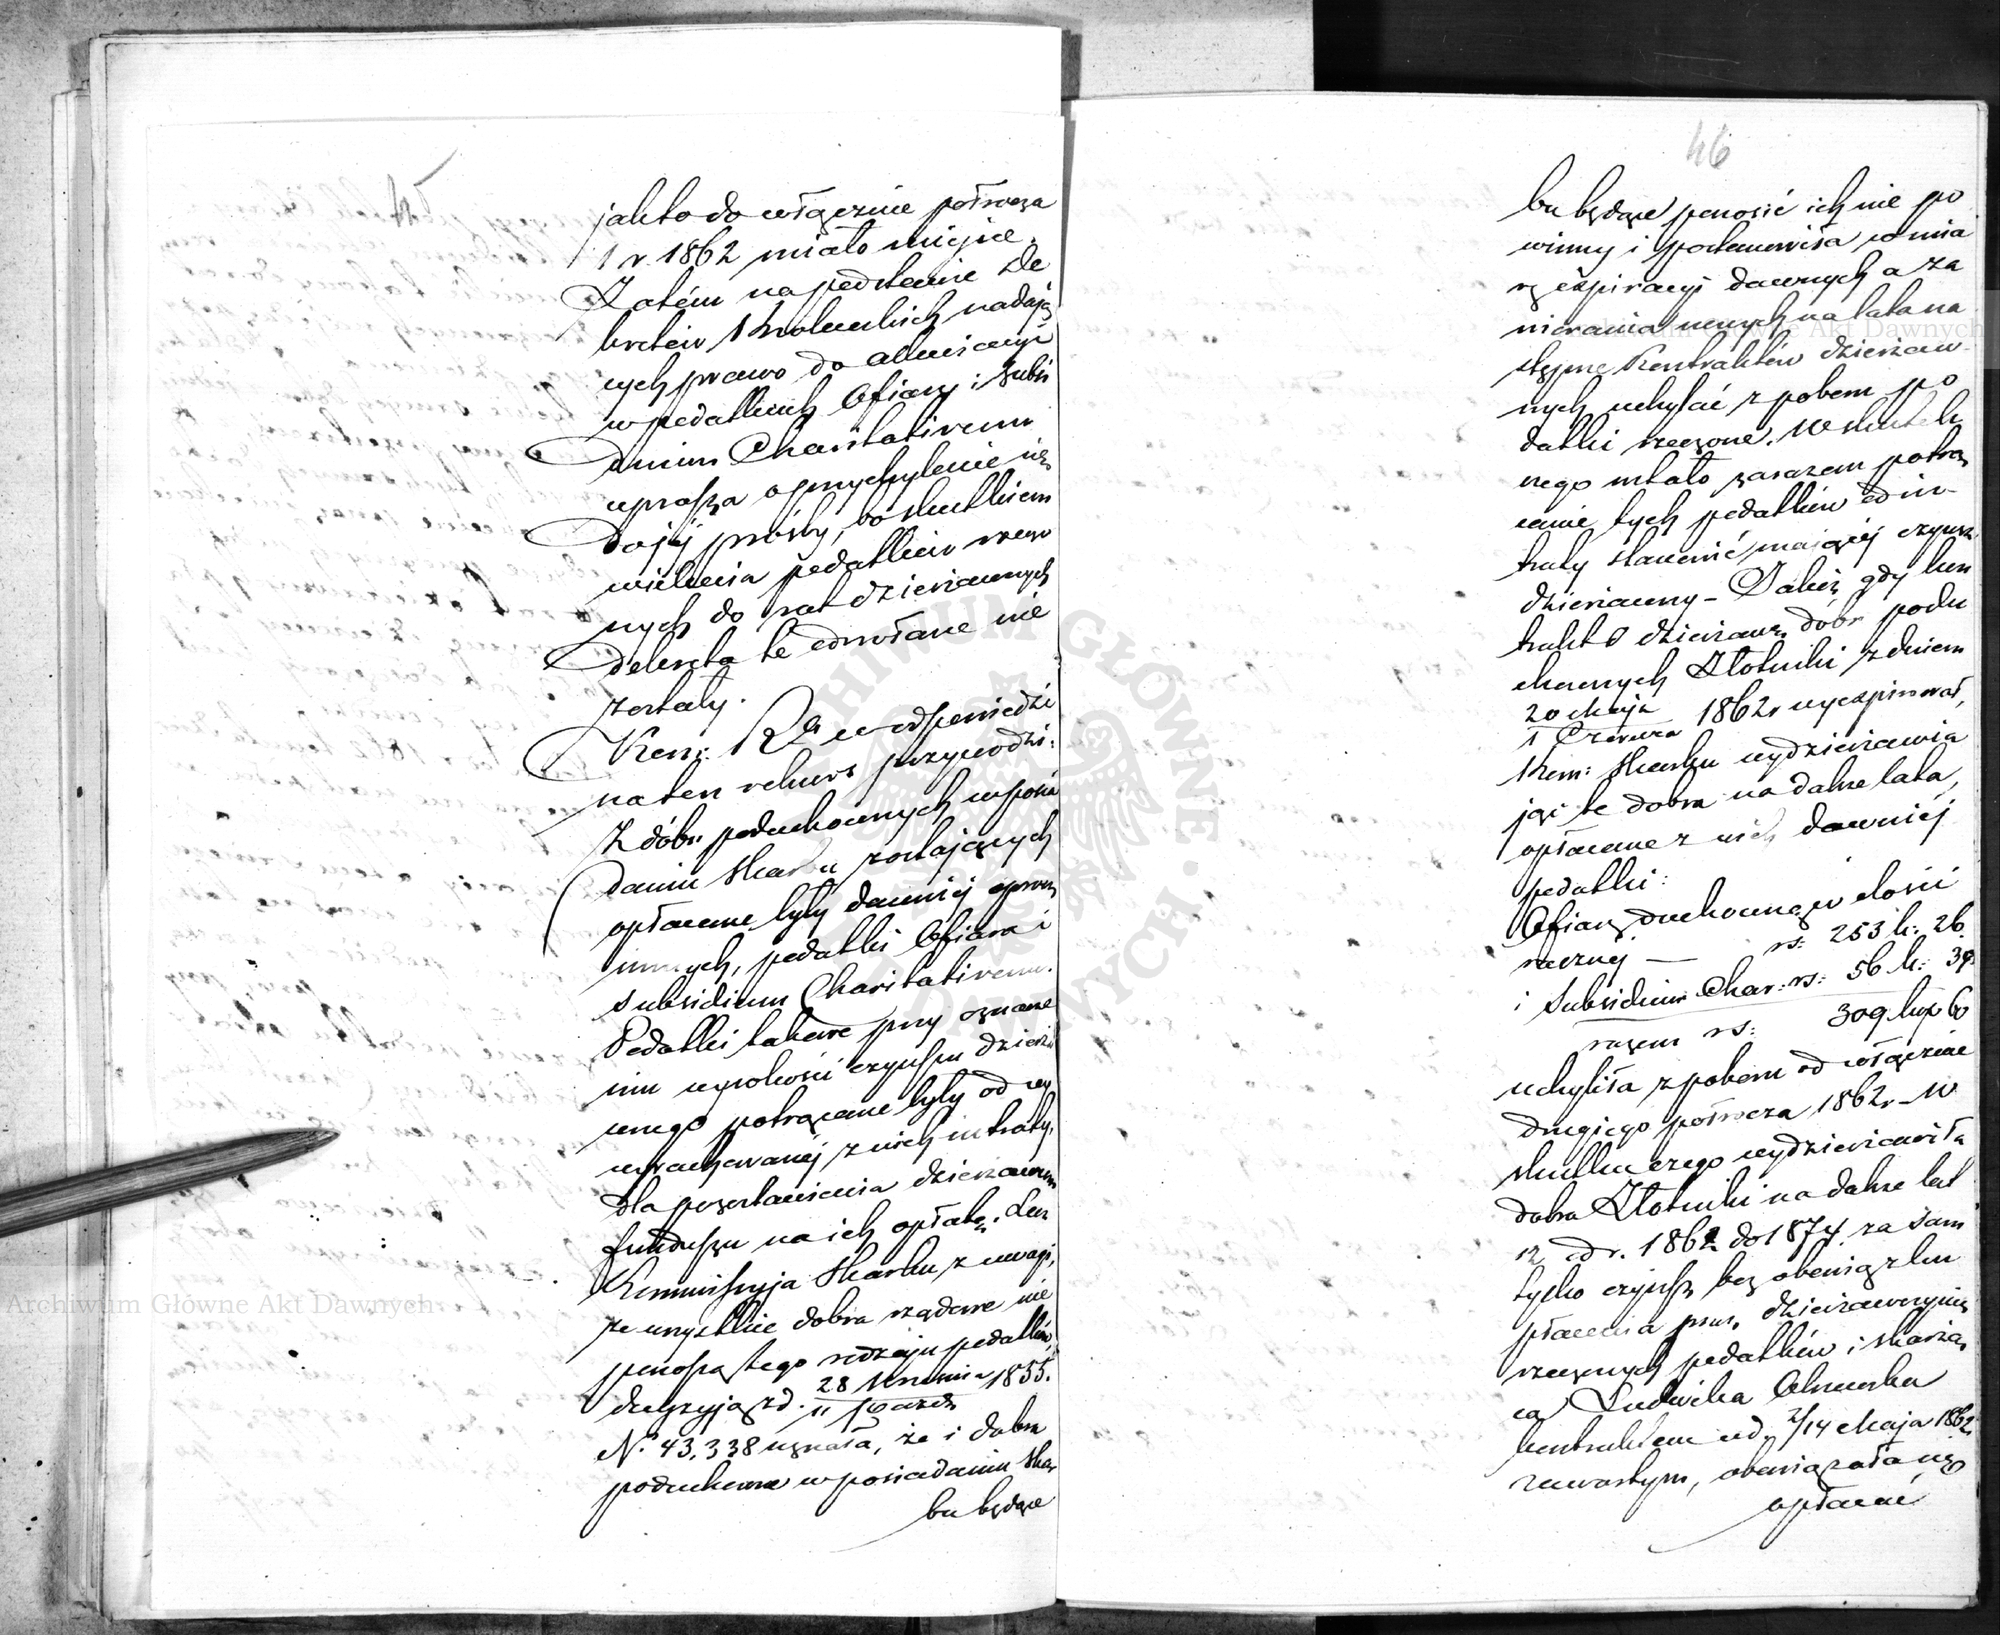 45
jak to do włącznie półrocza
1 r. 1862 miało miejsce.
Zatém na podstawie De
kretów Królewskich nadają
cych prawo do alewiacyi
w podatkach Ofiary i Subsi
dium Charitativum
uprasza o przychylenie się
do jéj prośby, bo skutkiem
wcielenia podatków rzeczo
nych do rat dzierżawnych
dekreta te odwołane nie
zostały.
Kom: w odpowiedzi
na ten rekurs przywodzi:
Z dóbr poduchownych w posia
daniu Skarbu zostających
opłacane były dawniéj oprócz
innych, podatki Ofiara i
Subsidium Charitativum.
Podatki takowe przy oznacze
niu wysokości czynszu dzierża
wnego potrącane były od wy
rachowanéj z nich intraty,
dla pozostawienia dzierżawcom
funduszu na ich opłatę. Lecz
Kommissyja Skarbu z uwagi,
że wszystkie dobra rządowe nie
ponoszą tego rodzaju podatków,
decyzyją z d. 28 Września / 11 Paźdz 1855.
N. 43,338 uznała, że i dobra
poduchowne w posiadaniu Skar
bu będące
46
bu będące ponosić ich nie po
winny i postanowiła w mia
rę expiracyi dawnych a za
wierania nowych na lata na
stępne Kontraktów dzierżaw
nych uchylać z poboru po
datki rzeczone. W skutek
czego ustało zarazem potrą
canie tych podatków od in
traty stanowić mającéj czynsz
dzierżawny – Jakoż gdy kon
trakt dzierżawy dóbr podu
chownych Złotniki z dniem
20 Maja / 1 Czerwca 1862 r wyexpirował,
Kom: Skarbu wydzierżawia
jąc te dobra na dalsze lata,
opłacane z nich dawniéj
podatki:
Ofiarę duchowną w ilości
rocznéj — rs: 253 k: 26.
i Subsidium Char: rs: 56 k: 39
razem rs: 309 kop 60
uchyliła z poboru od włącznie
drugiego półrocza 1862 r – W
skutku czego wydzierżawiła
dobra Złotniki na dalsze lat
12 od r. 1862 do 1874 za sam
tylko czynsz bez obowiązku
płacenia przez dzierżawczynię
rzeczonych podatków i skarżą
ca Ludwika
kontraktem z d. 2/14 Maja 1862
zawartym, obowiązała się
opłacać
Archiwum Główne Akt Dawnych